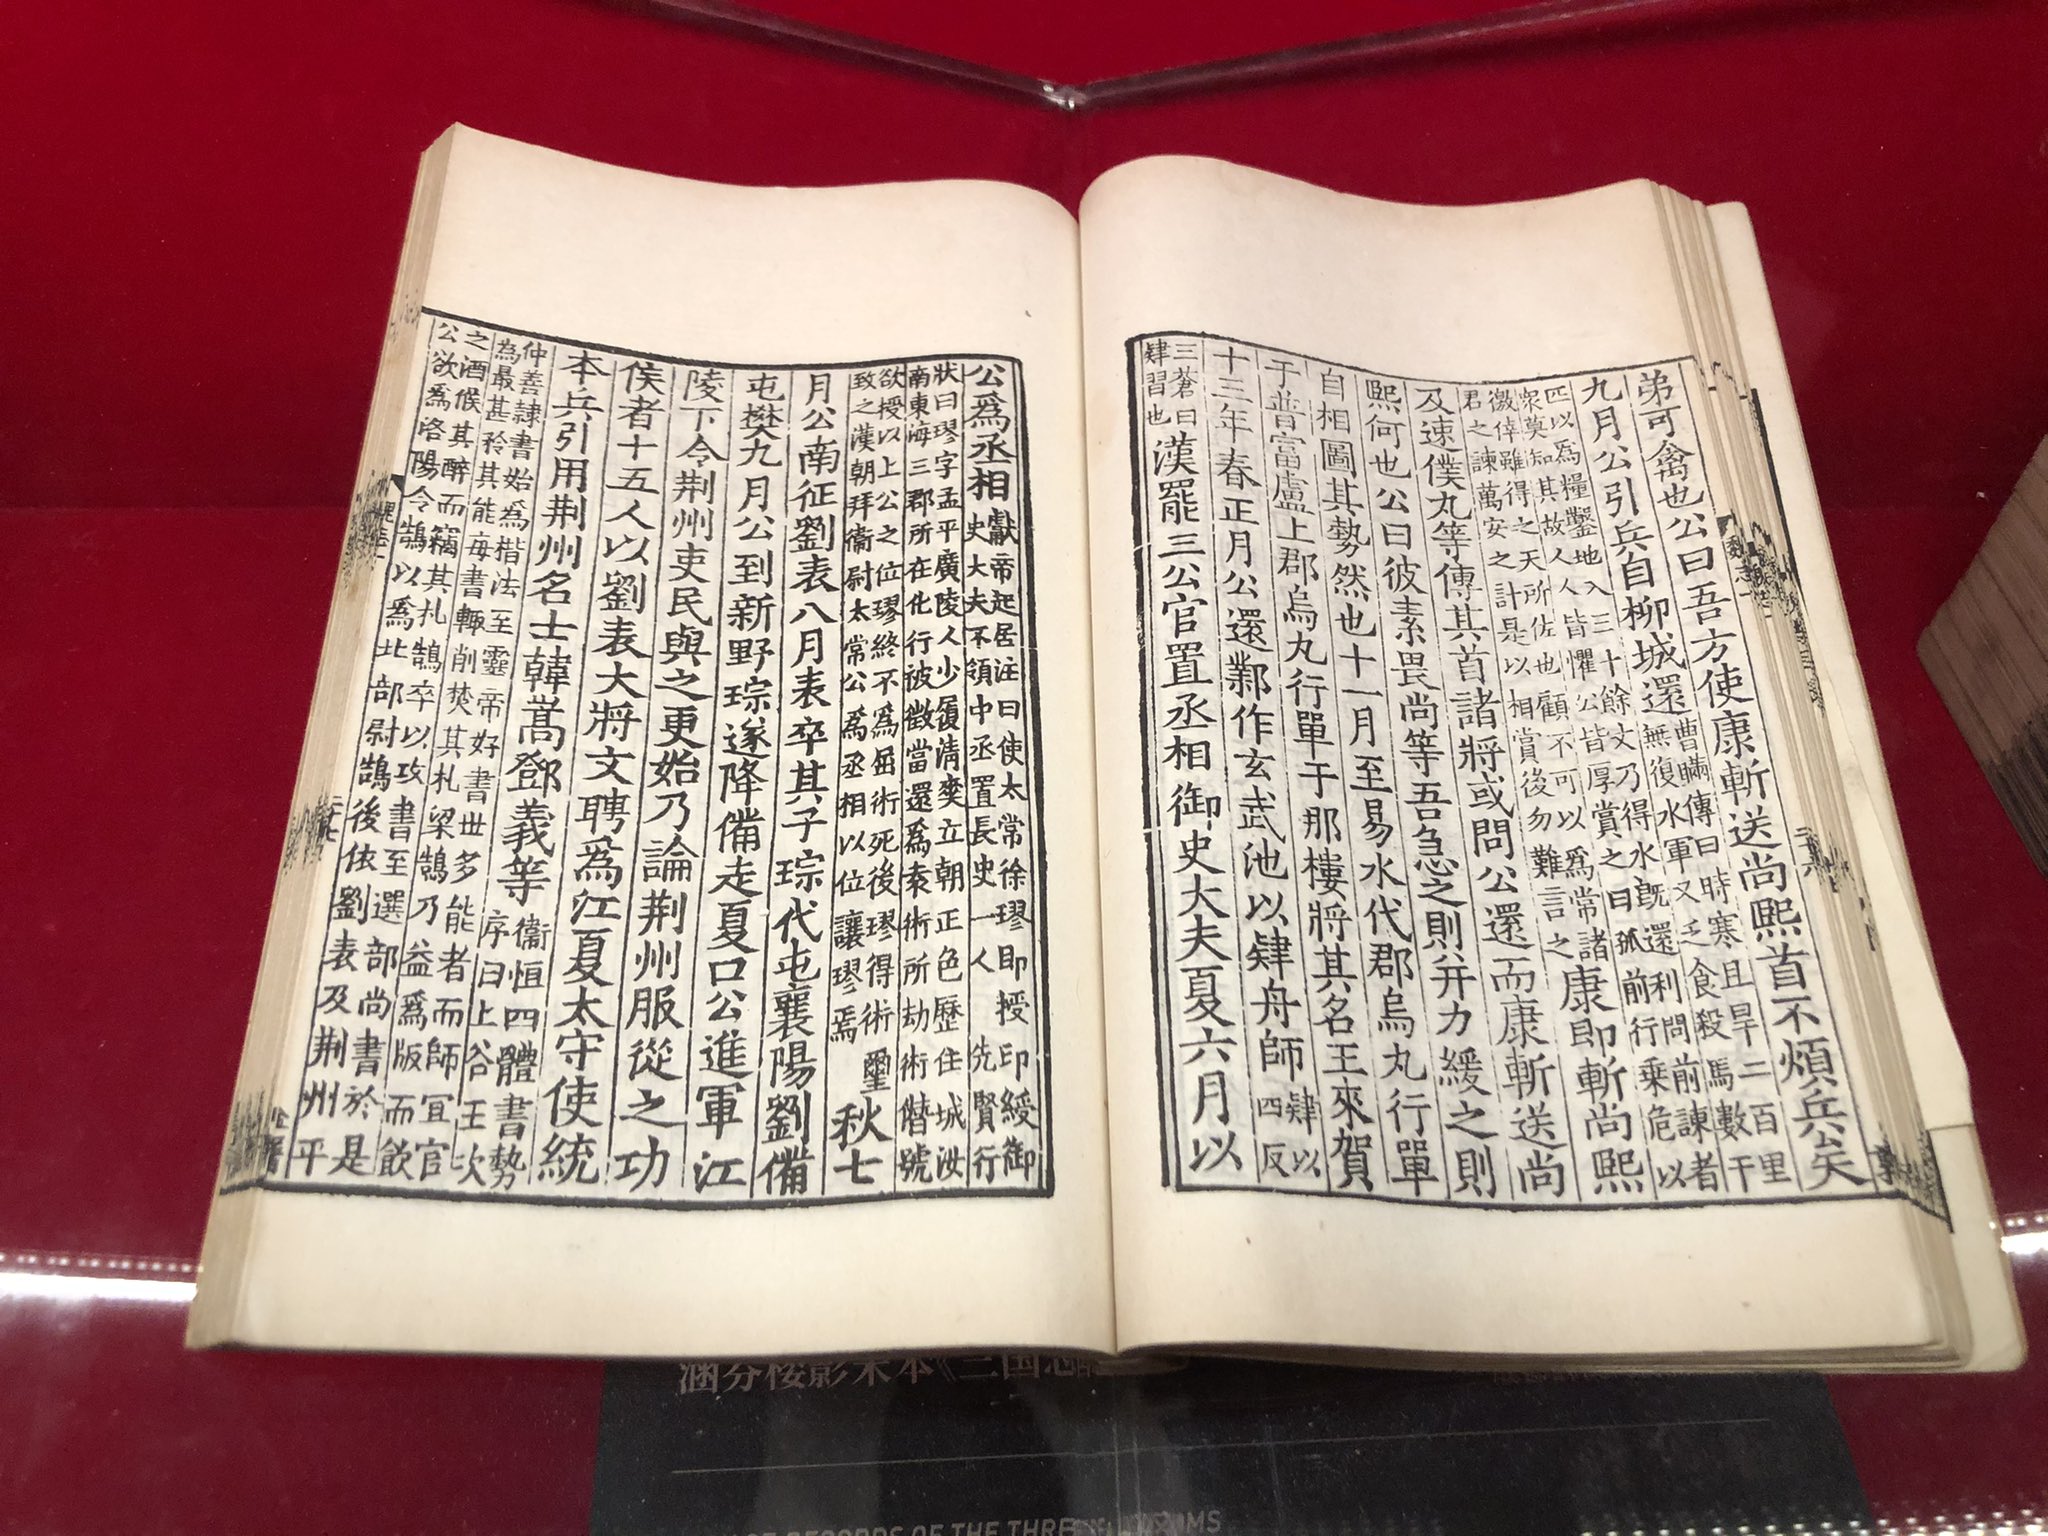 弟可禽也公曰吾方使康斬送尚熙首不煩兵矣
九月公引兵自柳城還曹瞞傳曰時寒且旱二百里無復水軍又乏食殺馬數千
匹以為糧鑿地入三十餘丈乃得水旣還科問前諫者衆莫知其故人人皆懼公皆厚賞之曰孤前行乗危以
徼倖雖得之天所佐也顧不可以爲常諸君之諫萬安之計是以相賞後勿難言之康即斬尚熙
及速僕丸等傳其首諸將或問公還而康斬送尚
熙何也公曰彼素畏尚等吾急之則并力緩之則
自相圖其勢然也十一月至易水代郡烏丸行單
于普富盧上郡烏丸行單于那樓將其名王來賀
十三年春正月公還鄴作玄武池以肄舟師肄以四反
三蒼曰肄習也漢罷三公官置丞相御史大夫夏六月以
公爲丞相獻帝起居注曰使太常徐璆即授印綬御史大夫不領中丞置長史一人先賢行
狀曰璆字孟平廣陵人少履清爽立朝正色歷任城汝南東海三郡所在化行被徵當還爲袁術所劫術僭號
欲授以上公之位璆終不爲屈術死後璆得術璽致之漢朝拜衞尉太常公爲丞相以位讓璆焉秋七
月公南征劉表八月表卒其子琮代屯襄陽劉備
屯樊九月公到新野琮遂降備走夏口公進軍江
陵下令荆州吏民與之更始乃論荆州服從之功
侯者十五人以劉表大將文聘爲江夏太守使統
本兵引用荆州名士韓嵩鄧義等衞恒四體書勢序曰上谷王次
仲善隷書始爲楷法至靈帝好書世多能者而師宜官爲最甚矜其能每書輒削焚其札梁鵠乃益爲版而飲
之酒候其醉而竊其札鵠卒以攻書至選部尚書於是公欲爲洛陽令鵠以爲北部尉鵠後依劉表及荆州平